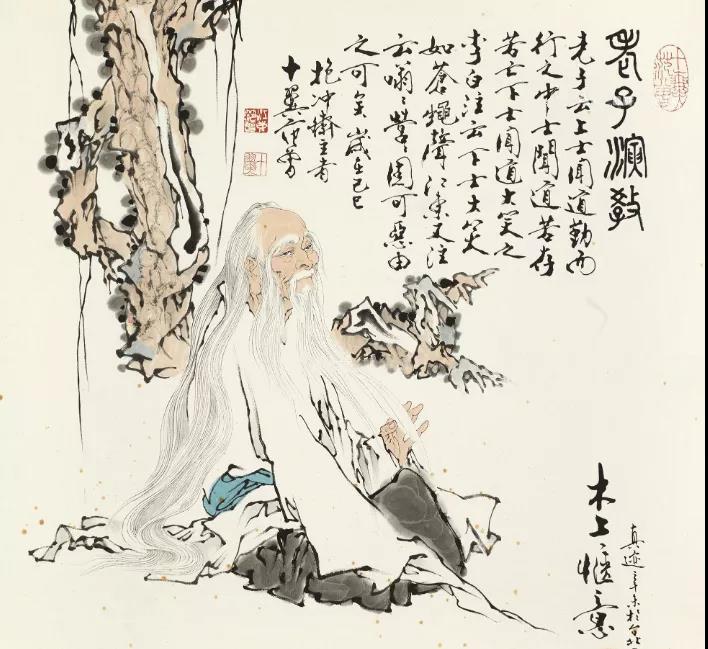 老子演教
老子云上士聞道勤而
行之中士聞道若存
若亡下士聞道大笑之
李白注云下士大笑
如蒼蠅聲江東又注
云嗡嗡營營固可惡由
之可矣歲在己巳
抱冲齋主者
十翼范曾
愜意
真迹辛未於台北